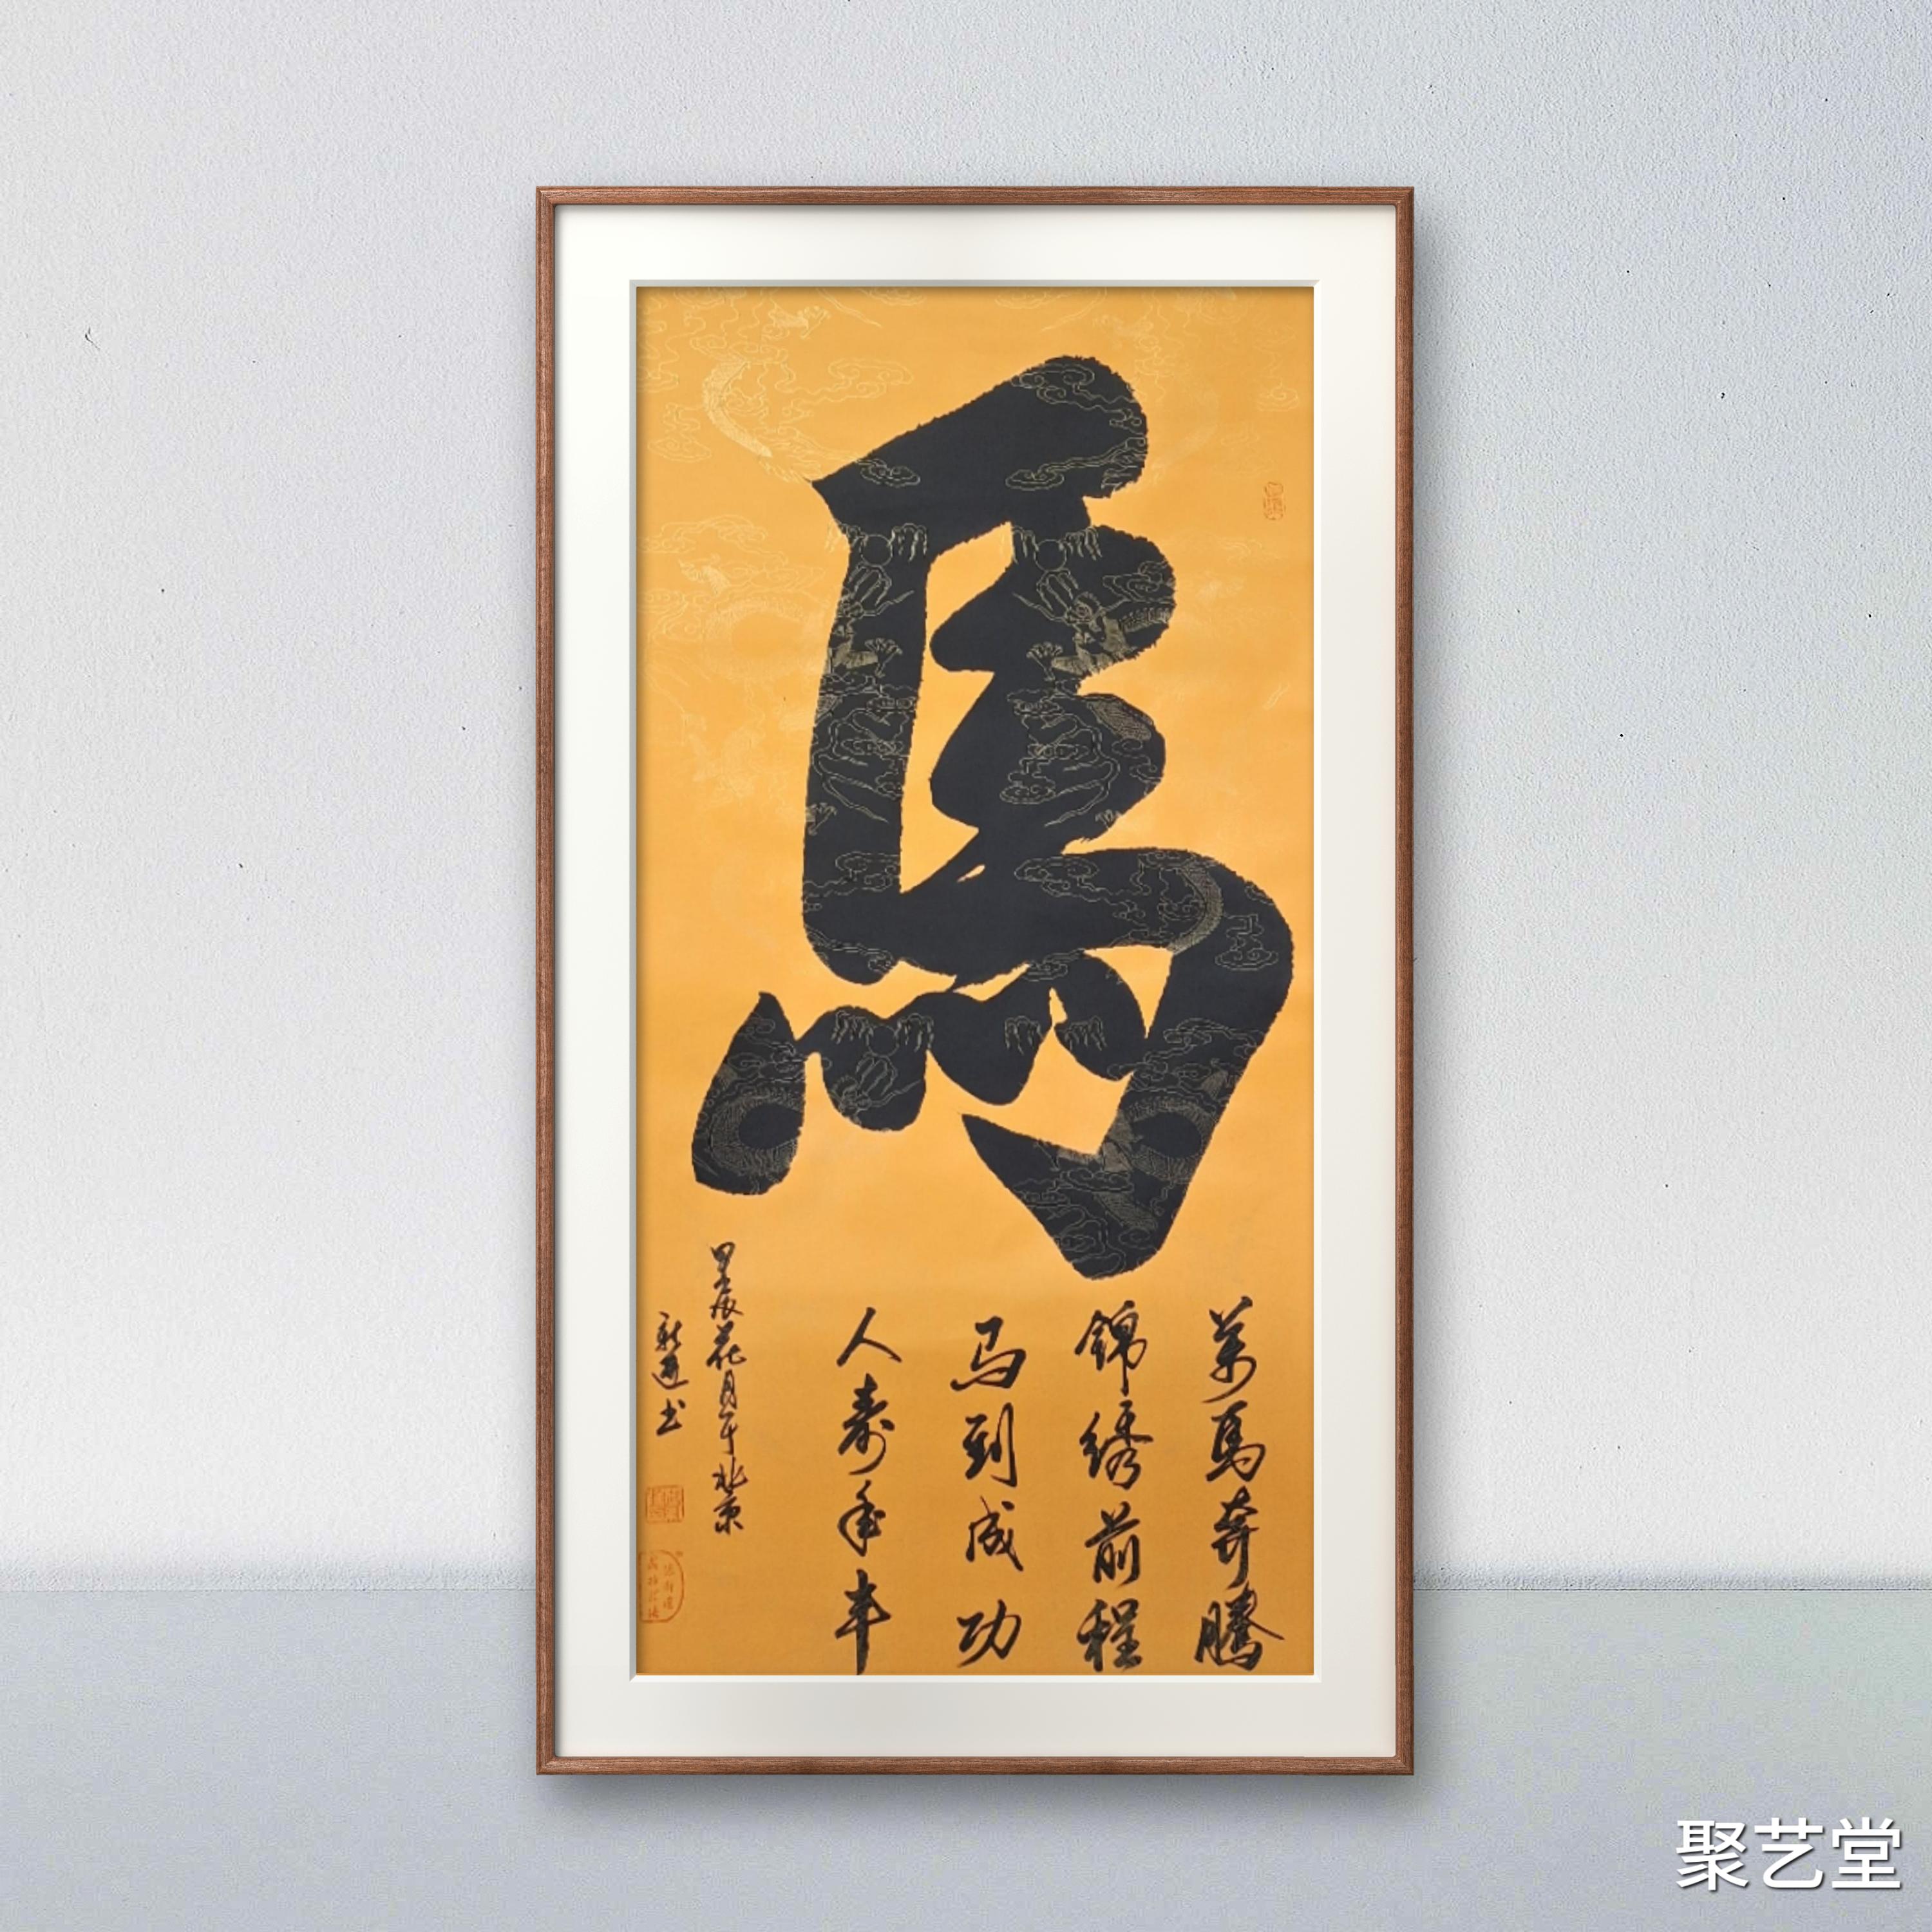 馬
萬馬奔騰
錦绣前程
马到成功
人寿年丰
甲辰花月于北京
书
聚艺堂